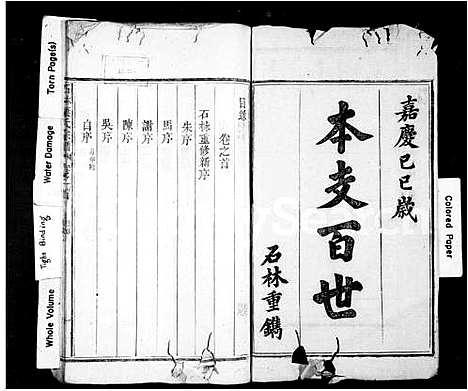 嘉慶己巳歲
本支百世
石林重鐫
目錄
卷之首
石林重修新序
朱序
馬序
謝序
陳序
吳序
自序
Colored Paper
Torn Page(s)
Water Damage
Tight Binding
Whole Volume